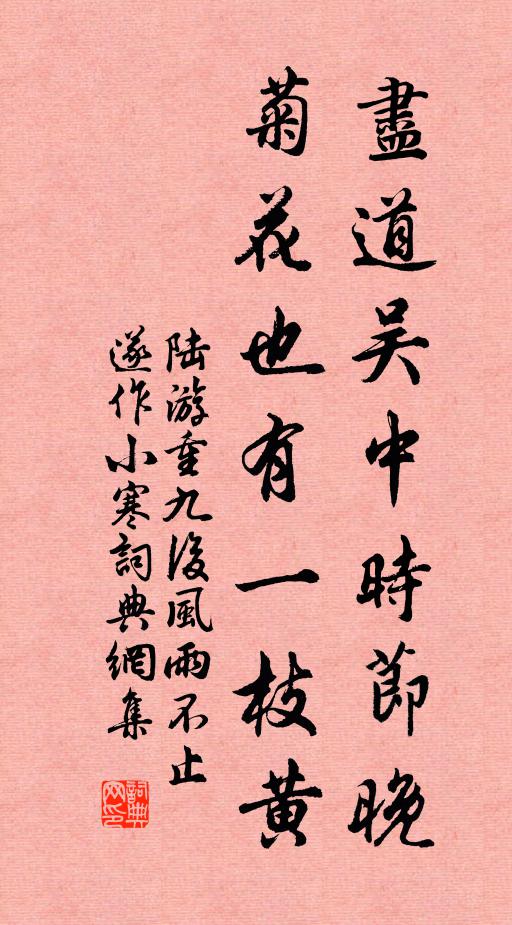 盡道吴中時節晚
菊花也有一枝黄
陆游重九後風雨不止
遂作小寒詞典網集
詞典
网印